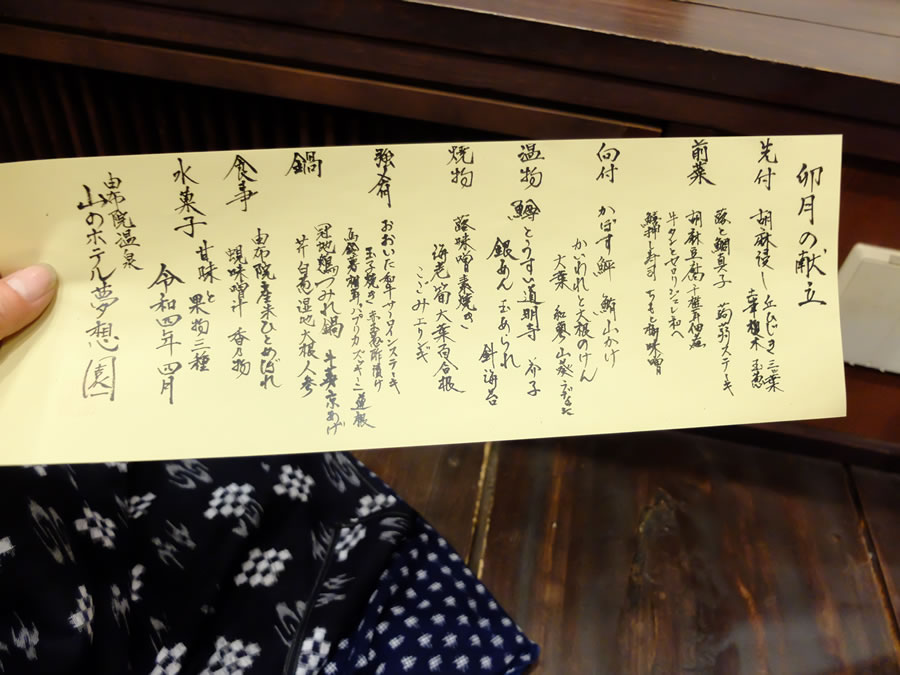 卯月の献立
先付 胡麻浸し 丘ひじき 三葉
前菜 蕗と鯛真子 蒟蒻ステーキ
胡麻豆腐
牛タンとゼロリジュレ和へ
鰻押し寿司 ちもと柳味噌
向付 かぼす鮃 鮪山かけ
かいわれと大根のけん
大葉 紅蓼 山葵
温物 鱒とうすい道明寺 芥子
銀あん 玉あられ 針海苔
焼物 蕗味噌素焼き
海老 筍 大葉百合根
こごみ
強肴 おおいた和牛サーロインステーキ
玉子焼き
馬鈴薯 パプリカ ズッキーニ 蓮根
鍋 冠地鶏つみれ鍋 牛蒡 京あげ
芹 白葱 湿地 大根 人参
食事 由布院産米ひとめぼれ
蜆味噌汁 香の物
水菓子 甘味と果物三種
令和四年四月
由布院温泉
山のホテル夢想園